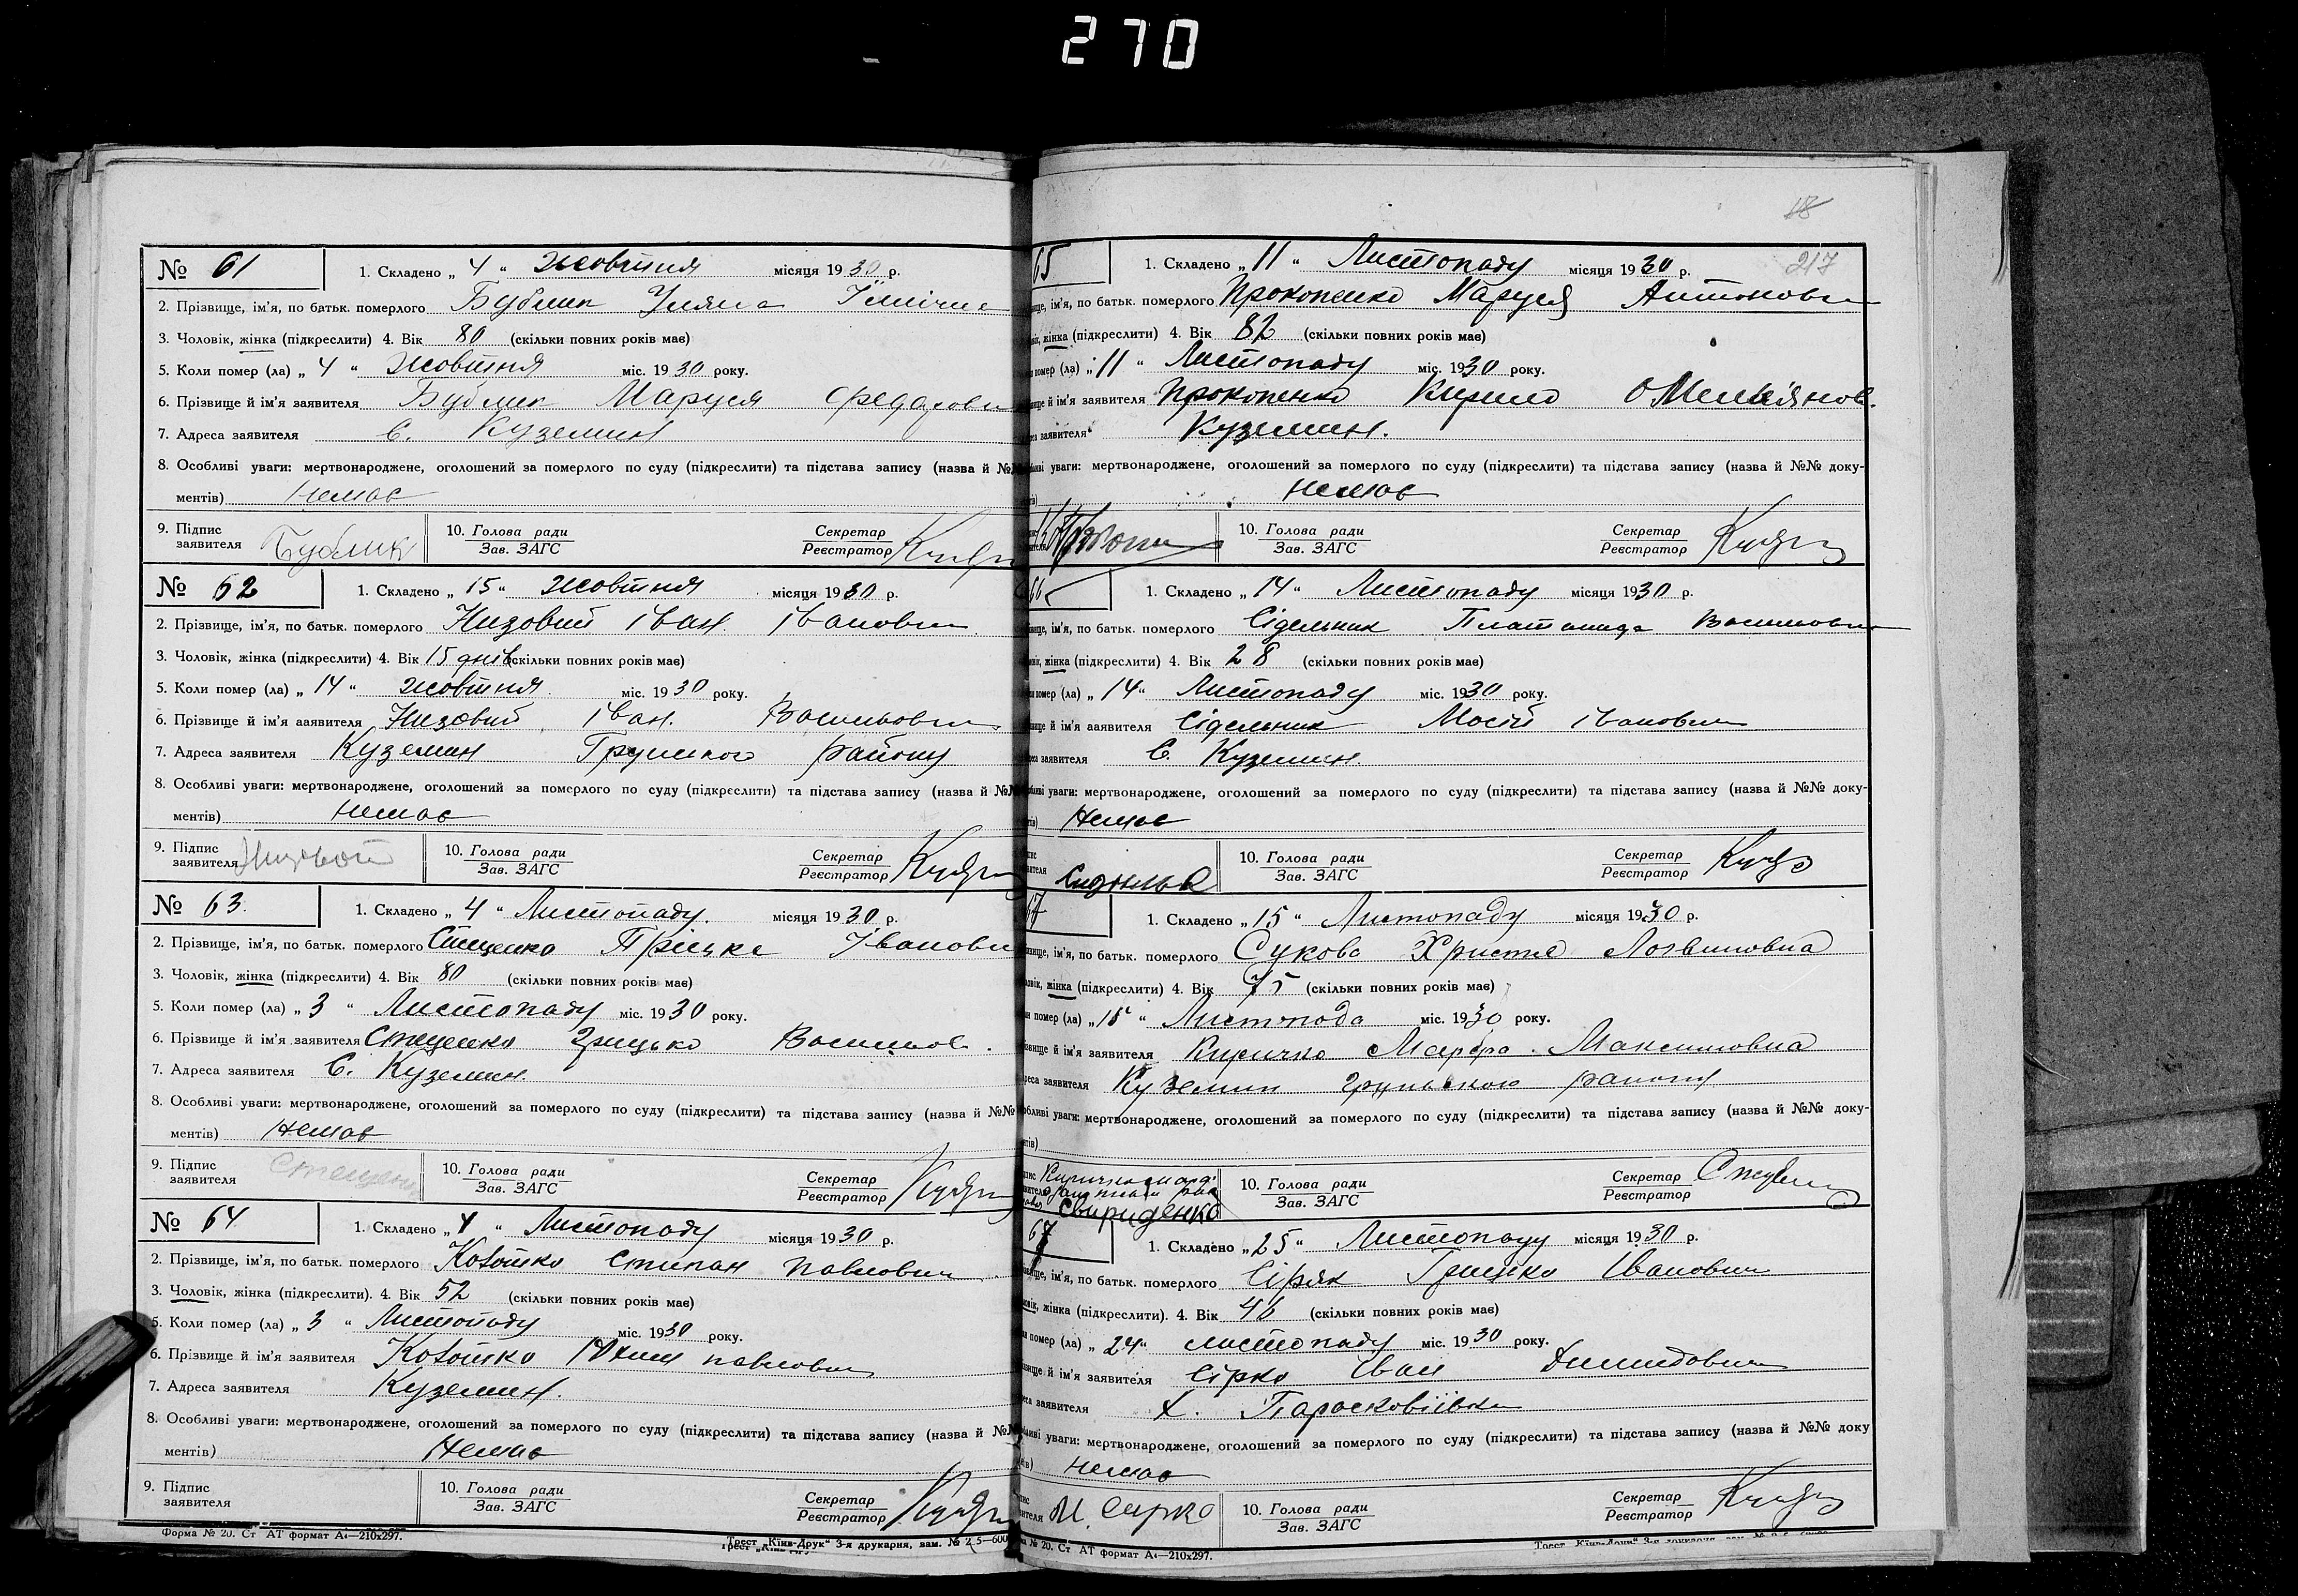 270
№ 61
1. Складено „ 4 “ Жовтня місяця 1930 р.
2. Прізвище, ім'я, по батьк. померлого Бублик Уляна
3. Чоловік, жінка (підкреслити) 4. Вік 80 (скільки повних років має)
5. Коли помер (ла) „ 4 “ Жовтня міс. 1930 року.
6. Прізвище й ім'я заявителя Бублик Маруся
7. Адреса заявителя С. Куземин
8. Особливі уваги: мертвонароджене, оголошений за померлого по суду (підкреслити) та підстава запису (назва й №№
ментів) Немає
9. Підпис заявителя Бублик 10. Голова ради Зав. ЗАГС Секретар Реєстратор
№ 62
1. Складено „ 15 “ Жовтня місяця 1930 р.
2. Прізвище, ім'я, по батьк. померлого Низовий Іван Іванович
3. Чоловік, жінка (підкреслити) 4. Вік 15 днів (скільки повних років має)
5. Коли помер (ла) „ 14 “ Жовтня міс. 1930 року.
6. Прізвище й ім'я ааявителя Низовий Іван Васильович
7. Адреса заявителя Куземин Груньского району
8. Особливі уваги: мертвонароджене, оголошений за померлого по суду (підкреслити) та підстава запису (назва й №№
ментів) Немає
9. Підпис заявителя 10. Голова ради Зав. ЗАГС Секретар Реєстратор
№ 63
1. Складено „ 4 “ Листопаду місяця 1930 р.
2. Прізвище, ім'я, по батьк. померлого Стеценко Пріська Івановн
3. Чоловік, жінка (підкреслити) 4. Вік 80 (скільки повних років має)
5. Коли помер (ла) „ 3 “ Листопаду міс. 1930 року.
6. Прізвище й ім'я заявителя Стеценко Грицько Васильов.
7. Адреса заявителя С. Куземин.
8. Особливі уваги: мертвонароджене, оголошений за померлого по суду (підкреслити) та підстава запису (назва й №№
ментів) Немає
9. Підпис заявителя 10. Голова ради Зав. ЗАГС Секретар Реєстратор
№ 64
1. Складено „ 4 “ Листопаду місяця 1930 р.
2. Прізвище, ім'я, по батьк. померлого Степан Павлович
3. Чоловік, жінка (підкреслити). 4. Вік 52 (скільки повних років має)
5. Коли помер (ла) „ 3 “ Листопаду міс. 1930 року.
6. Прізвище й ім'я заявителя Павлович
7. Адреса заявителя Куземин.
8. Особливі уваги: мертвонароджене, оголошений за померлого по суду (підкреслити) та підстава запису (назва й №№
ментів) Немає
9. Підпис заявителя 10. Голова ради Зав. ЗАГС Секретар Реєстратор
Форма № 20. Ст АТ формат А4—210х297. Трест „Київ-Друк“ 3-я друкарня, зам. №
217
65
1. Складено „ 11 “ Листопаду місяця 1930 р.
ім'я, по батьк. померлого Прокопенко Маруся Антоновн
жінка (підкреслити) 4. Вік 82 (скільки повних років має)
помер (ла) „ 11 “ Листопаду міс. 1930 року.
й ім'я заявителя Прокопенко Кирило Омелянов.
заявителя Куземин.
уваги: мертвонароджене, оголошений за померлого по суду (підкреслити) та підстава запису (назва й №№ доку-
Немає
10. Голова ради Зав. ЗАГС Секретар Реєстратор
66
1. Складено „ 14 “ Листопаду місяця 1930 р.
ім'я, по батьк. померлого Сідельник Платонида Васильовн
жінка (підкреслити) 4. Вік 28 (скільки повних років має)
помер (ла) „ 14 “ Листопаду міс. 1930 року.
й ім'я заявителя Сідельник Мосій Іванович
заявителя С. Куземин.
уваги: мертвонароджене, оголошений за померлого по суду (підкреслити) та підстава запису (назва й №№ доку-
Немає
10. Голова ради Зав. ЗАГС Секретар Реєстратор
67
1. Складено „ 15 “ Листопаду місяця 1930 р.
ім'я, по батьк. померлого Сукова Христя Логвиновна
жінка (підкреслити) 4. Вік 75 (скільки повних років має)
помер (ла) „ 15 “ Листопада міс. 1930 року.
й ім'я заявителя Киричко Марфа Максимовна
заявителя Куземин Груньского району
уваги: мертвонароджене, оголошений за померлого по суду (підкреслити) та підстава запису (назва й №№ доку-
Свириденко 10. Голова ради Зав. ЗАГС Секретар Реєстратор
67
1. Складено „ 25 “ Листопаду місяця 1930 р.
ім'я, по батьк. померлого Сіряк Грицько Іванович
жінка (підкреслити). 4. Вік 46 (скільки повних років має)
помер (ла) „ 24 “ листопаду міс. 1930 року.
й ім'я заявителя Сірко Іван Демидович
заявителя х. Парасковіївка
уваги: мертвонароджене, оголошений за померлого по суду (підкреслити) та підстава запису (назва й №№ доку
Немає
И. Сирко 10. Голова ради Зав. ЗАГС Секретар Реєстратор
№ 20. Ст АТ формат А4—210х297.